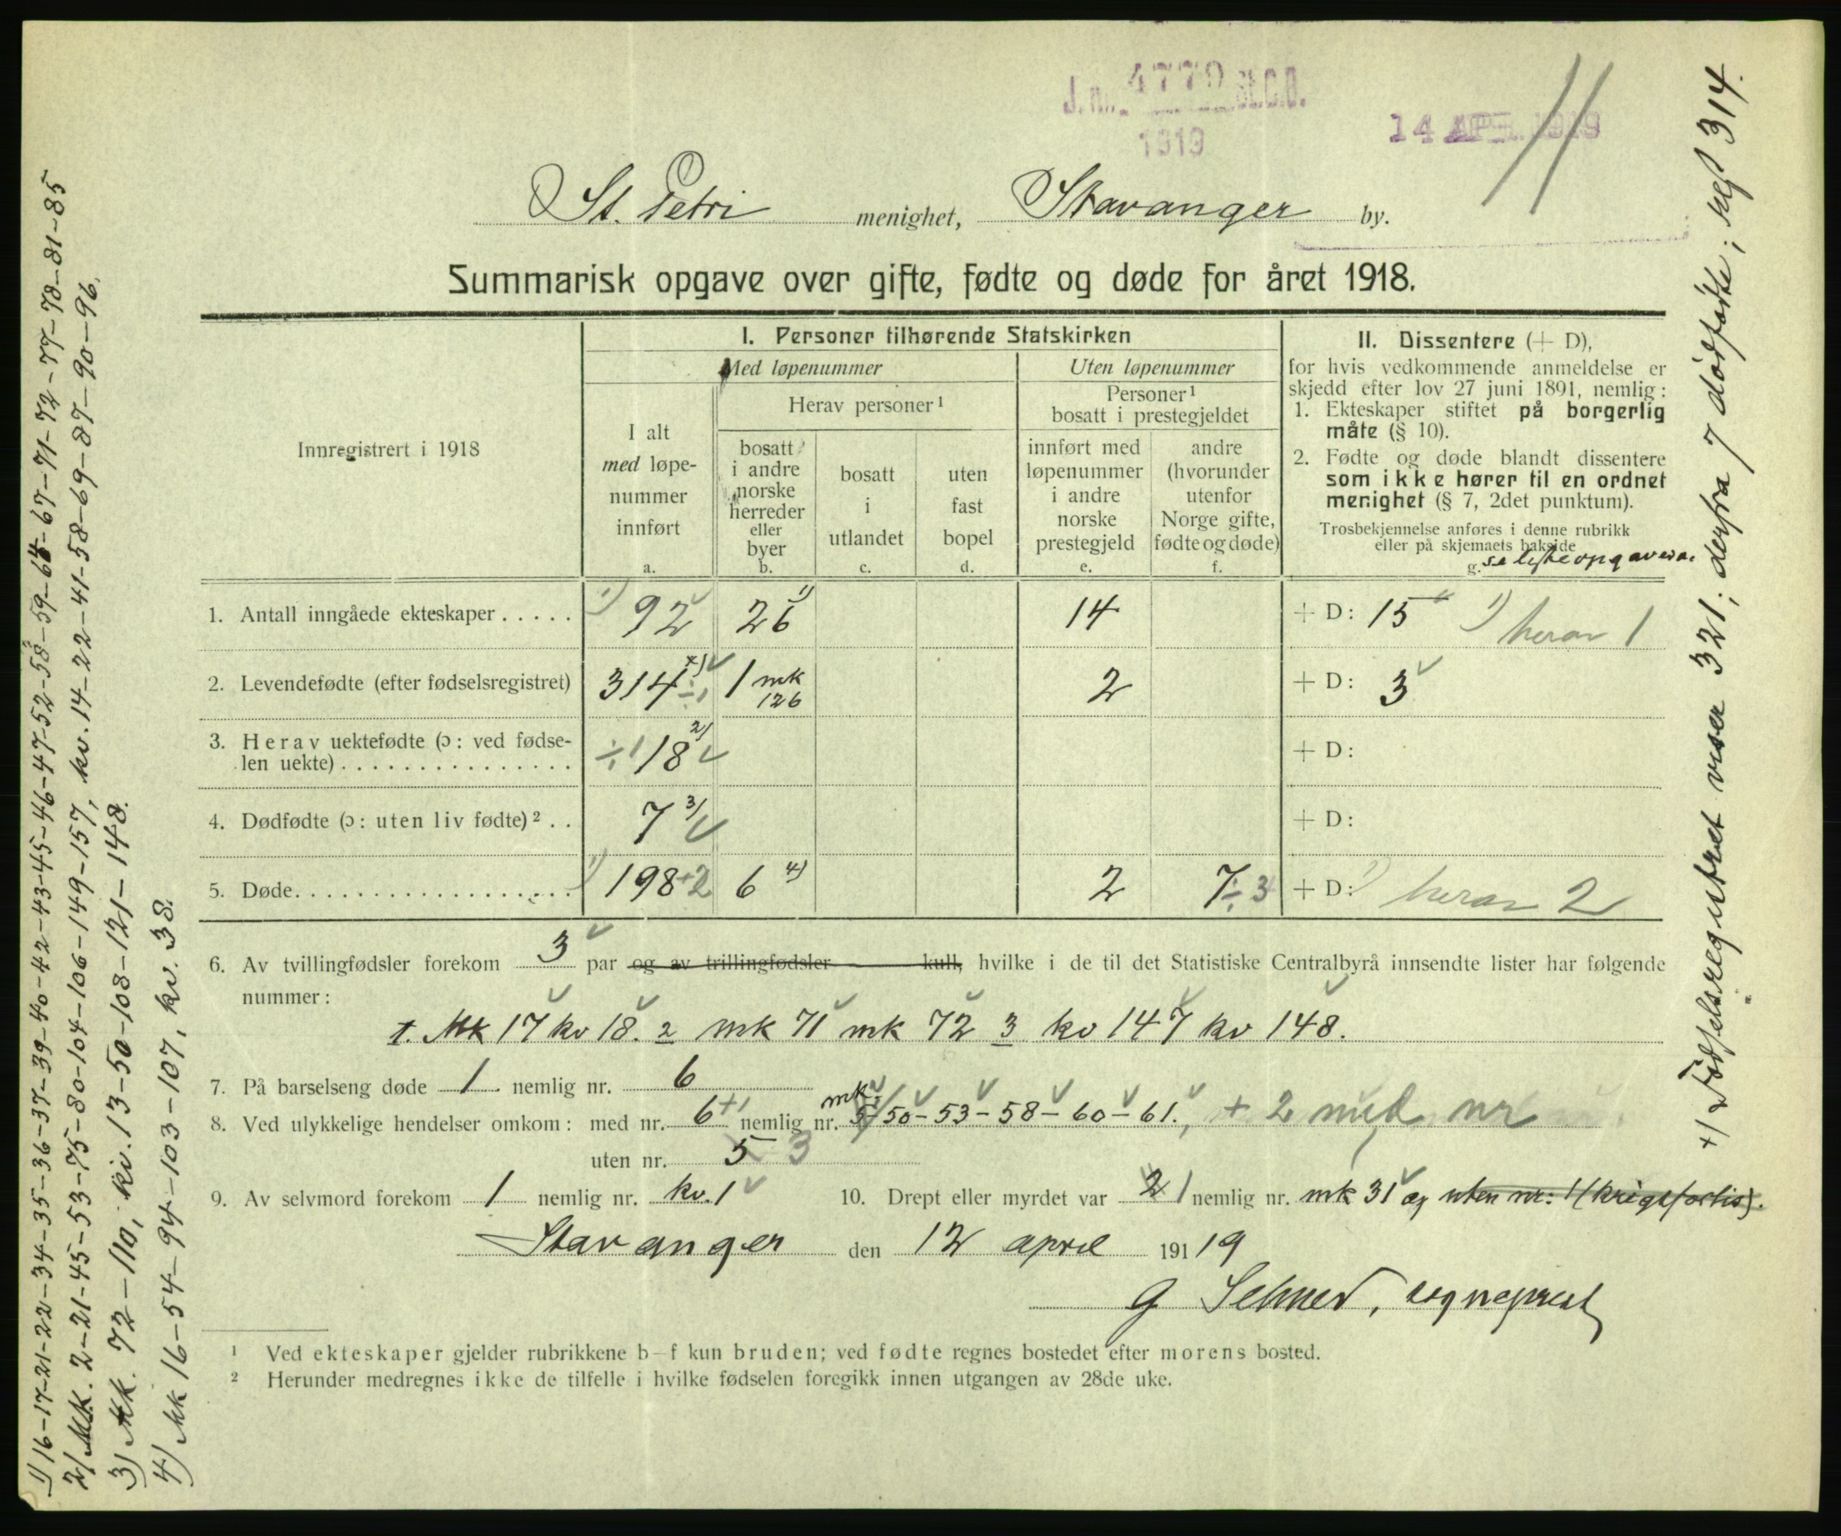 J. nr. 4779 St.C.B.
1919
14 APR. 1919
St. Petri menighet, Stavanger by.
Summarisk opgave over gifte, fødte og døde for året 1918.
Innregistrert i 1918
I. Personer tilhørende Statskirken
Med løpenummer
Uten løpenummer
I alt
med løpe-
nummer
innført
a.
Herav personer ¹
bosatt
i andre
norske
herreder
eller
byer
b.
bosatt
i
utlandet
c.
uten
fast
bopel
d.
Personer ¹
bosatt i prestegjeldet
innført med
løpenummer
i andre
norske
prestegjeld
e.
andre
(hvorunder
utenfor
Norge gifte,
fødte og døde)
f.
II. Dissentere (+ D),
for hvis vedkommende anmeldelse er
skjedd efter lov 27 juni 1891, nemlig:
1. Ekteskaper stiftet på borgerlig
måte (§ 10).
2. Fødte og døde blandt dissentere
som ikke hører til en ordnet
menighet (§ 7, 2det punktum).
Trosbekjennelse anføres i denne rubrikk
eller på skjemaets bakside
g. se listeopgavene.
1. Antall inngåede ekteskaper . . . . . 1) 92 26 1) 14 + D: 15 1) herav 1
2. Levendefødte (efter fødselsregistret) 314 +) ÷1 1 mk 126 2 + D: 3
3. Herav uektefødte (ɔ: ved fødse-
len uekte) . . . . . . . . . . . . . . . ÷1 18 2) + D:
4. Dødfødte (ɔ: uten liv fødte) ² . . 7 3) + D:
5. Døde. . . . . . . . . . . . . . . . . . 1) 198 +2 6 4) 2 7 ÷ 3 + D: 1) herav 2
6. Av tvillingfødsler forekom 3 par og av trillingfødsler kull, hvilke i de til det Statistiske Centralbyrå innsendte lister har følgende
nummer:
1. Mk 17 kv 18. 2 mk 71 mk 72 3 kv 147 kv 148.
7. På barselseng døde 1 nemlig nr. 6
8. Ved ulykkelige hendelser omkom: med nr. 6 +1 nemlig nr. mk. 5-50-53-58-60-61., + 2 med nr
uten nr. 5 3
9. Av selvmord forekom 1 nemlig nr. kv. 1 10. Drept eller myrdet var 2 1 nemlig nr. mk 31 og uten nr: 1 (krigsforlis).
Stavanger den 12 april 1919
sogneprest
¹ Ved ekteskaper gjelder rubrikkene b–f kun bruden; ved fødte regnes bostedet efter morens bosted.
² Herunder medregnes ikke de tilfelle i hvilke fødselen foregikk innen utgangen av 28de uke.
1) 16-17-21-22-34-35-36-37-39-40-42-43-45-46-47-52-58-59-64-67-71-72-77-78-81-85
2) Mk. 2-21-45-53-75-80-104-106-149-157, kv. 14-22-41-58-69-87-90-96.
3) Mk. 72-110, kv. 13-50-108-121-148.
4) Mk 16-54-94-103-107, kv. 38.
+) Fødselsregistret viser 321; derfra 7 dødfødte; rest 314.